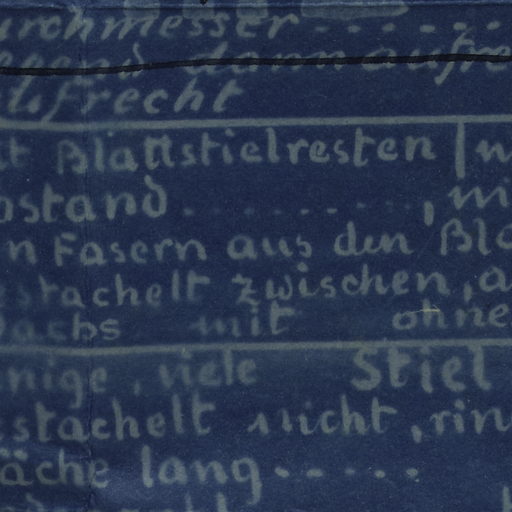 urchmesser . . . . . .
egend dann aufre
aufrecht
it Blattstielresten | n
bstand . . . . . . . . . , mi
n Fasern aus den Bla
estachelt zwischen, a
achs mit ohne
inige, viele Stiel
estachelt nicht, rin
äche lang . . . . .